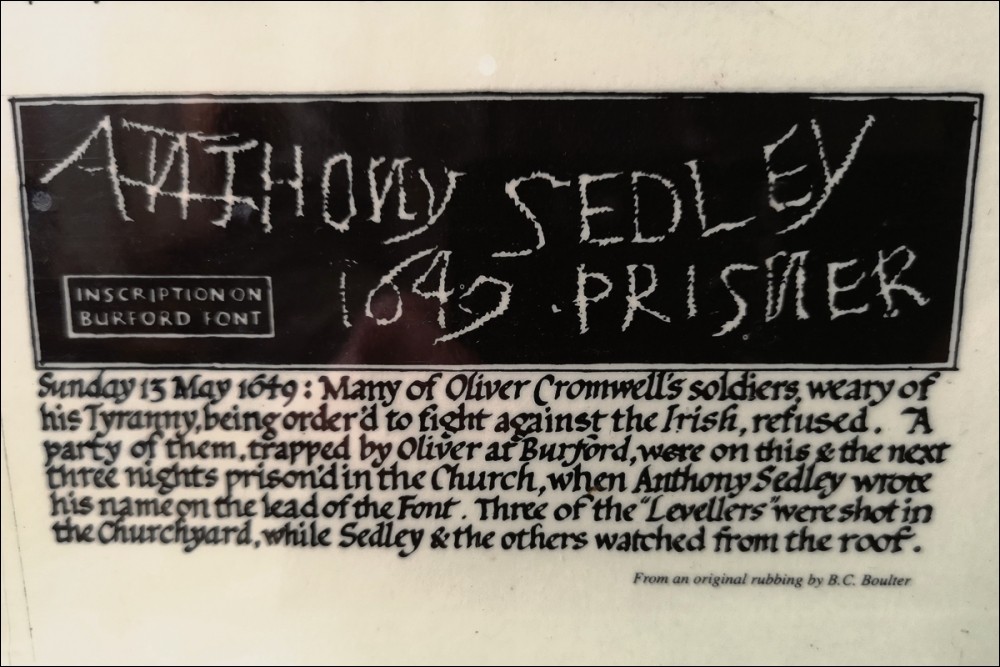 ANTHONY SEDLEY
1649. PRISNER
INSCRIPTION ON
BURFORD FONT
Sunday 13 May 1649: Many of Oliver Cromwell's soldiers, weary of
his Tyranny, being order'd to fight against the Irish, refused. A
party of them, trapped by Oliver at Burford, were on this & the next
three nights prison'd in the Church, when Anthony Sedley wrote
his name on the lead of the Font. Three of the "Levellers" were shot in
the Churchyard, while Sedley & the others watched from the roof.
From an original rubbing by B.C. Boulter